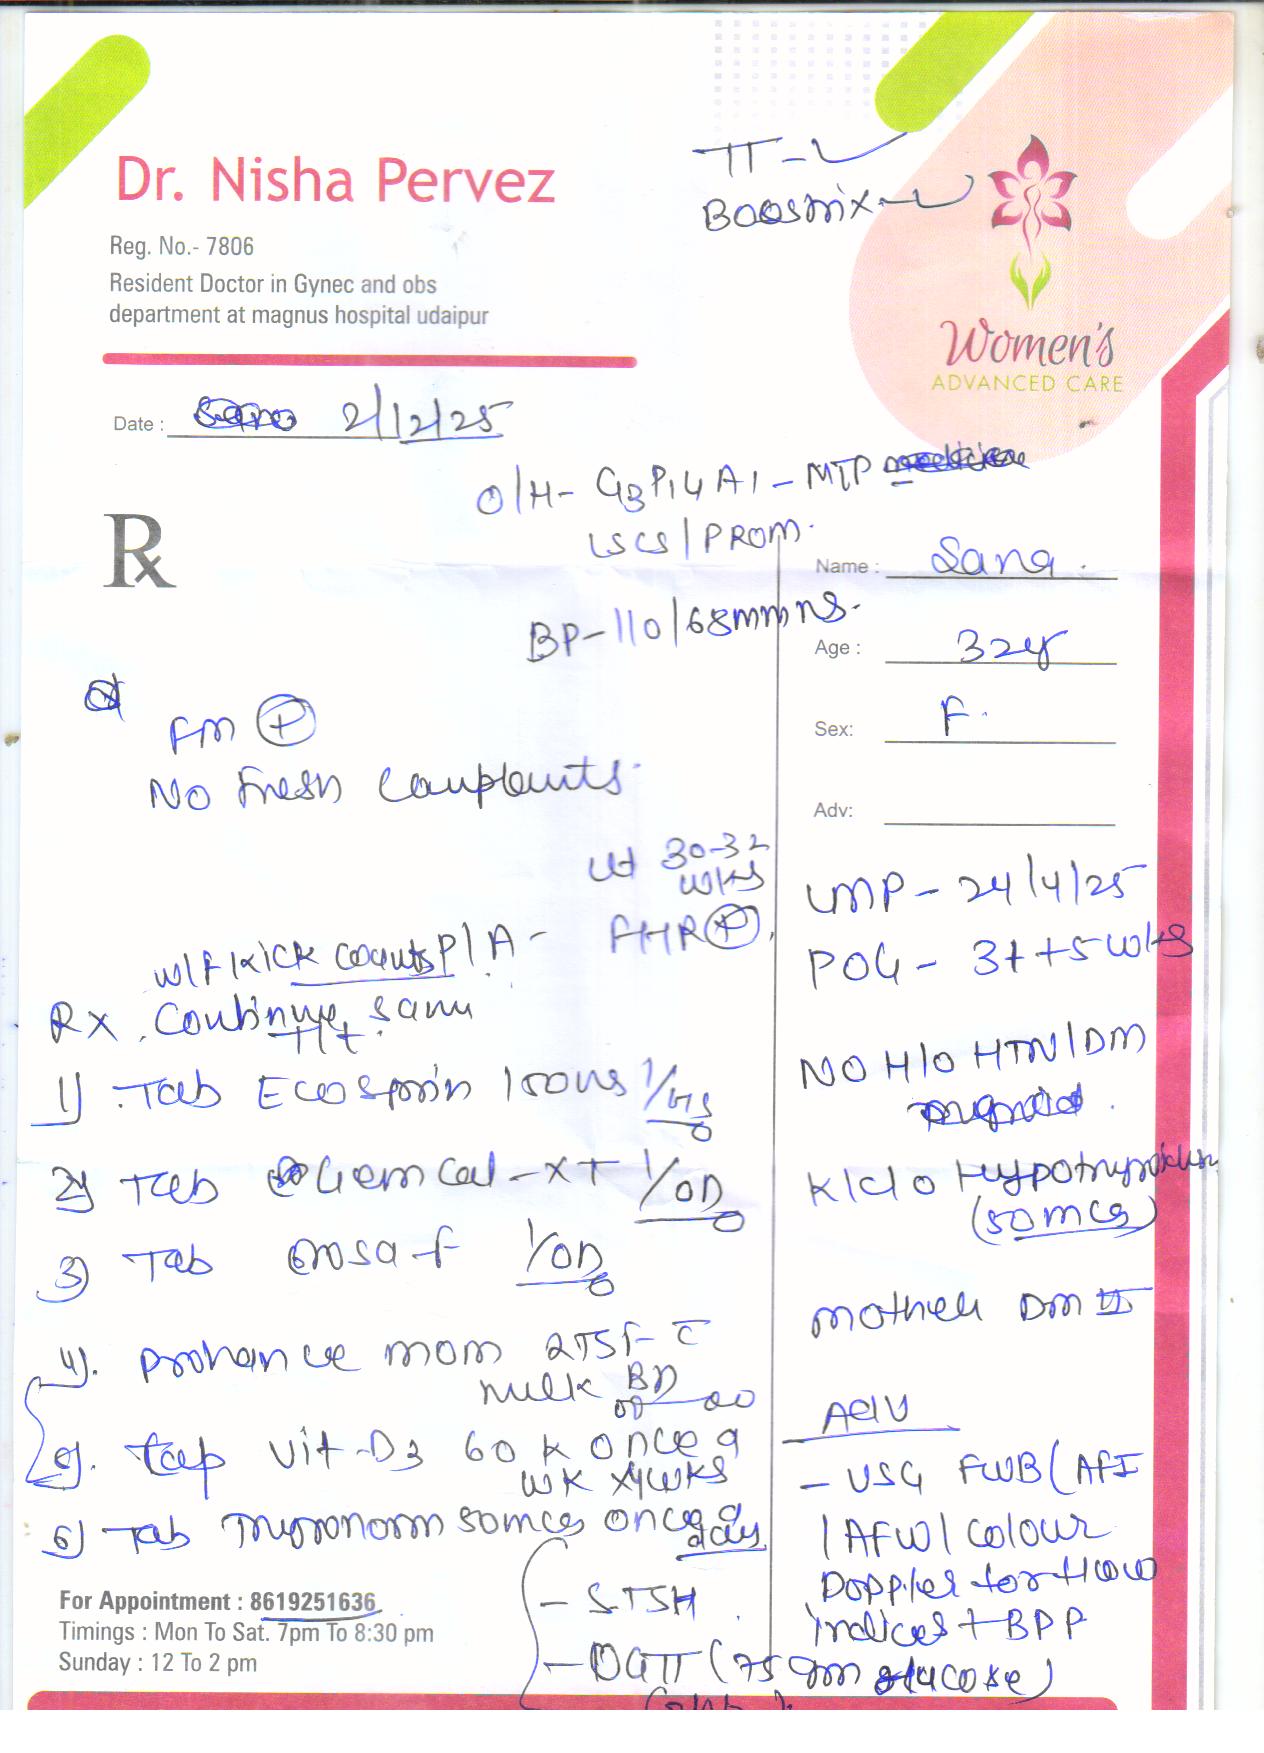 TT - ✓
Boostrix - ✓
Dr. Nisha Pervez
Reg. No.- 7806
Resident Doctor in Gynec and obs
department at magnus hospital udaipur
Women's
ADVANCED CARE
Date : 2/12/25
O/H- G3P1L1A1 - MTP
LSCS/PROM.
Rx
Name : Sana.
BP-110/68mmHg.
Age : 32yr
Sex: F.
FM (+)
No Fresh Complaints.
Adv:
Ut 30-32
wks
P/A - FHR (+).
LMP - 24/4/25
POG - 31+5 wks
w/f kick counts
Rx. Continue same
T/t.
NO H/O HTN/DM
1) Tab Ecosprin 150mg 1/HS
K/C/O Hypothyroidism
(50mcg)
2) Tab Gemcal-XT 1/OD
3) Tab Orosa-f 1/OD
Mother DM II
4). Prohance mom 2TSF c̄
milk BD
5). Cap Vit-D3 60 K once a
wk x4wks
6) Tab Thyronorm 50mcg once a
day
Adv
- USG FWB (AFI
/AFW/Colour
Doppler for flow
indices + BPP
- S.TSH
- OGTT (75 gm glucose)
For Appointment : 8619251636
Timings : Mon To Sat. 7pm To 8:30 pm
Sunday : 12 To 2 pm